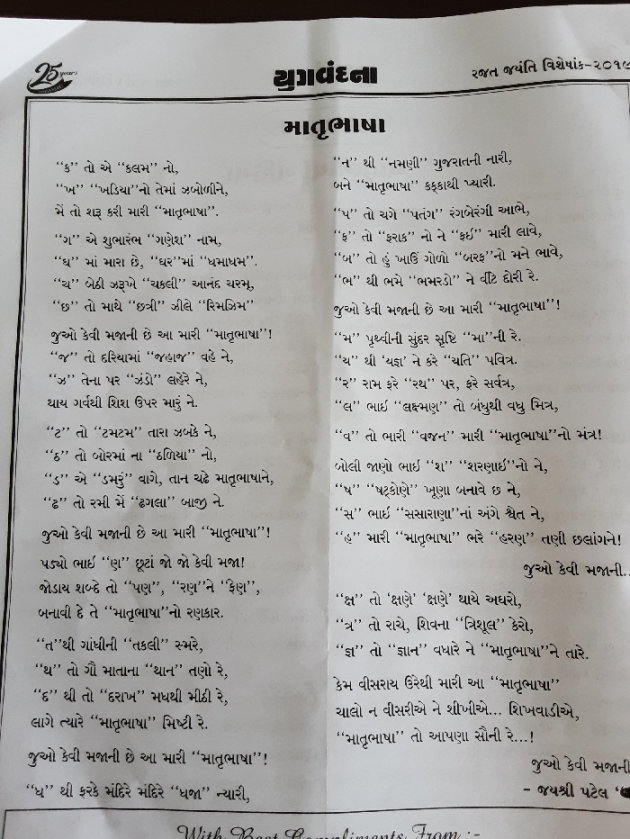 25 years
યુગવંદના
રજત જયંતિ વિશેષાંક-૨૦૧૯
માતૃભાષા
“ક” તો એ “કલમ” નો,
“ખ” “ખડિયા”નો તેમાં ઝબોળીને,
મેં તો શરૂ કરી મારી “માતૃભાષા”.
“ગ” એ શુભારંભ “ગણેશ” નામ,
“ઘ” માં મારા છે, “ઘર”માં “ધમાધમ”.
“ચ” બેઠી ઝરૂખે “ચકલી” આનંદ ચરમ્,
“છ” તો માથે “છત્રી” ઝીલે “રિમઝિમ”
જુઓ કેવી મજાની છે આ મારી “માતૃભાષા”!
“જ” તો દરિયામાં “જહાજ” વહે ને,
“ઝ” તેના પર “ઝંડો” લહેરે ને,
થાય ગર્વથી શિશ ઉપર મારું ને.
“ટ” તો “ટમટમ” તારા ઝબકે ને,
“ઠ” તો બોરમાં ના “ઠળિયા” નો,
“ડ” એ “ડમરું” વાગે, તાન ચઢે માતૃભાષાને,
“ઢ” તો રમી મેં “ઢગલા” બાજી ને.
જુઓ કેવી મજાની છે આ મારી “માતૃભાષા”!
પડ્યો ભાઈ “ણ” છૂટાં જો જો કેવી મજા!
જોડાય શબ્દે તો “પણ”, “રણ”ને “ફેણ”,
બનાવી દે તે “માતૃભાષા”નો રણકાર.
“ત”થી ગાંધીની “તકલી” સ્મરે,
“થ” તો ગૌ માતાના “થાન” તણો રે,
“દ” થી તો “દરાખ” મધથી મીઠી રે,
લાગે ત્યારે “માતૃભાષા” મિષ્ટી રે.
જુઓ કેવી મજાની છે આ મારી “માતૃભાષા”!
“ધ” થી ફરકે મંદિરે મંદિરે “ધજા” ન્યારી,
“ન” થી “નમણી” ગુજરાતની નારી,
બને “માતૃભાષા” કક્કાથી પ્યારી.
“પ” તો ચગે “પતંગ” રંગબેરંગી આભે,
“ફ” તો “ફરાક” નો ને “ફઈ” મારી લાવે,
“બ” તો હું ખાઉં ગોળો “બરફ”નો મને ભાવે,
“ભ” થી ભમે “ભમરડો” ને વીંટિ દોરી રે.
જુઓ કેવી મજાની છે આ મારી “માતૃભાષા”!
“મ” પૃથ્વીની સુંદર સૃષ્ટિ “મા”ની રે.
“ય” થી “યજ્ઞ” ને કરે “યતિ” પવિત્ર.
“ર” રામ ફરે “રથ” પર, ફરે સર્વત્ર,
“લ” ભાઈ “લક્ષ્મણ” તો બંધુથી વધુ મિત્ર,
“વ” તો ભારી “વજન” મારી “માતૃભાષા”નો મંત્ર!
બોલી જાણો ભાઈ “શ” “શરણાઈ”નો ને,
“ષ” “ષટ્કોણે” ખૂણા બનાવે છ ને,
“સ” ભાઈ “સસારાણા”નાં અંગે શ્વેત ને,
“હ” મારી “માતૃભાષા” ભરે “હરણ” તણી છલાંગને!
જુઓ કેવી મજાની..
“ક્ષ” તો ‘ક્ષણે’ ‘ક્ષણે’ થાયે અઘરો,
“ત્ર” તો રાચે, શિવના “ત્રિશૂલ” કેરો,
“જ્ઞ” તો “જ્ઞાન” વધારે ને “માતૃભાષા”ને તારે.
કેમ વીસરાય ઉરેથી મારી આ “માતૃભાષા”
ચાલો ન વીસરીએ ને શીખીએ... શિખવાડીએ,
“માતૃભાષા” તો આપણા સૌની રે...!
જુઓ કેવી મજાની
- જયશ્રી પટેલ
With Best Compliments From :-